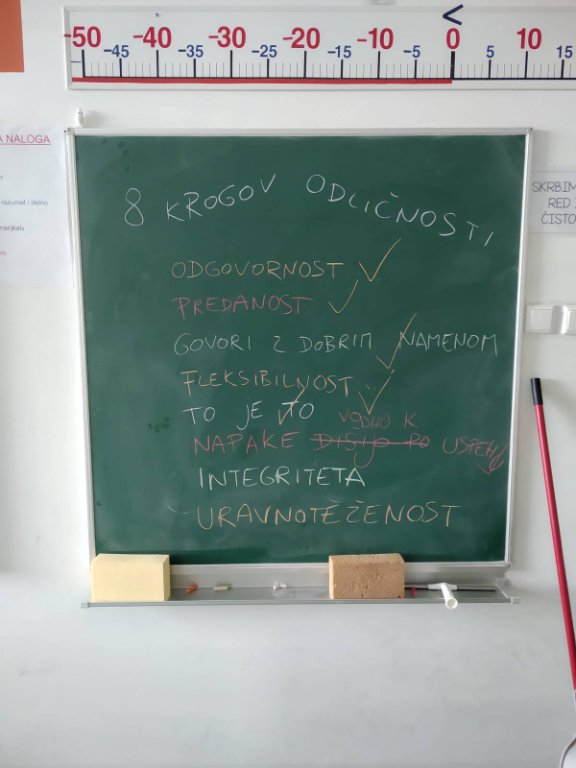 <
-50 -40 -30 -20 -10 0 10
-45 -35 -25 -15 -5 5 15
A NALOGA
razumel / delno
SKRBIM
RED
ČISTO
8 KROGOV ODLIČNOSTI
ODGOVORNOST ✓
PREDANOST ✓
GOVORI Z DOBRIM NAMENOM ✓
FLEKSIBILNOST ✓
TO JE TO ✓
VODIJO K
NAPAKE USPEHU
INTEGRITETA
URAVNOTEŽENOST